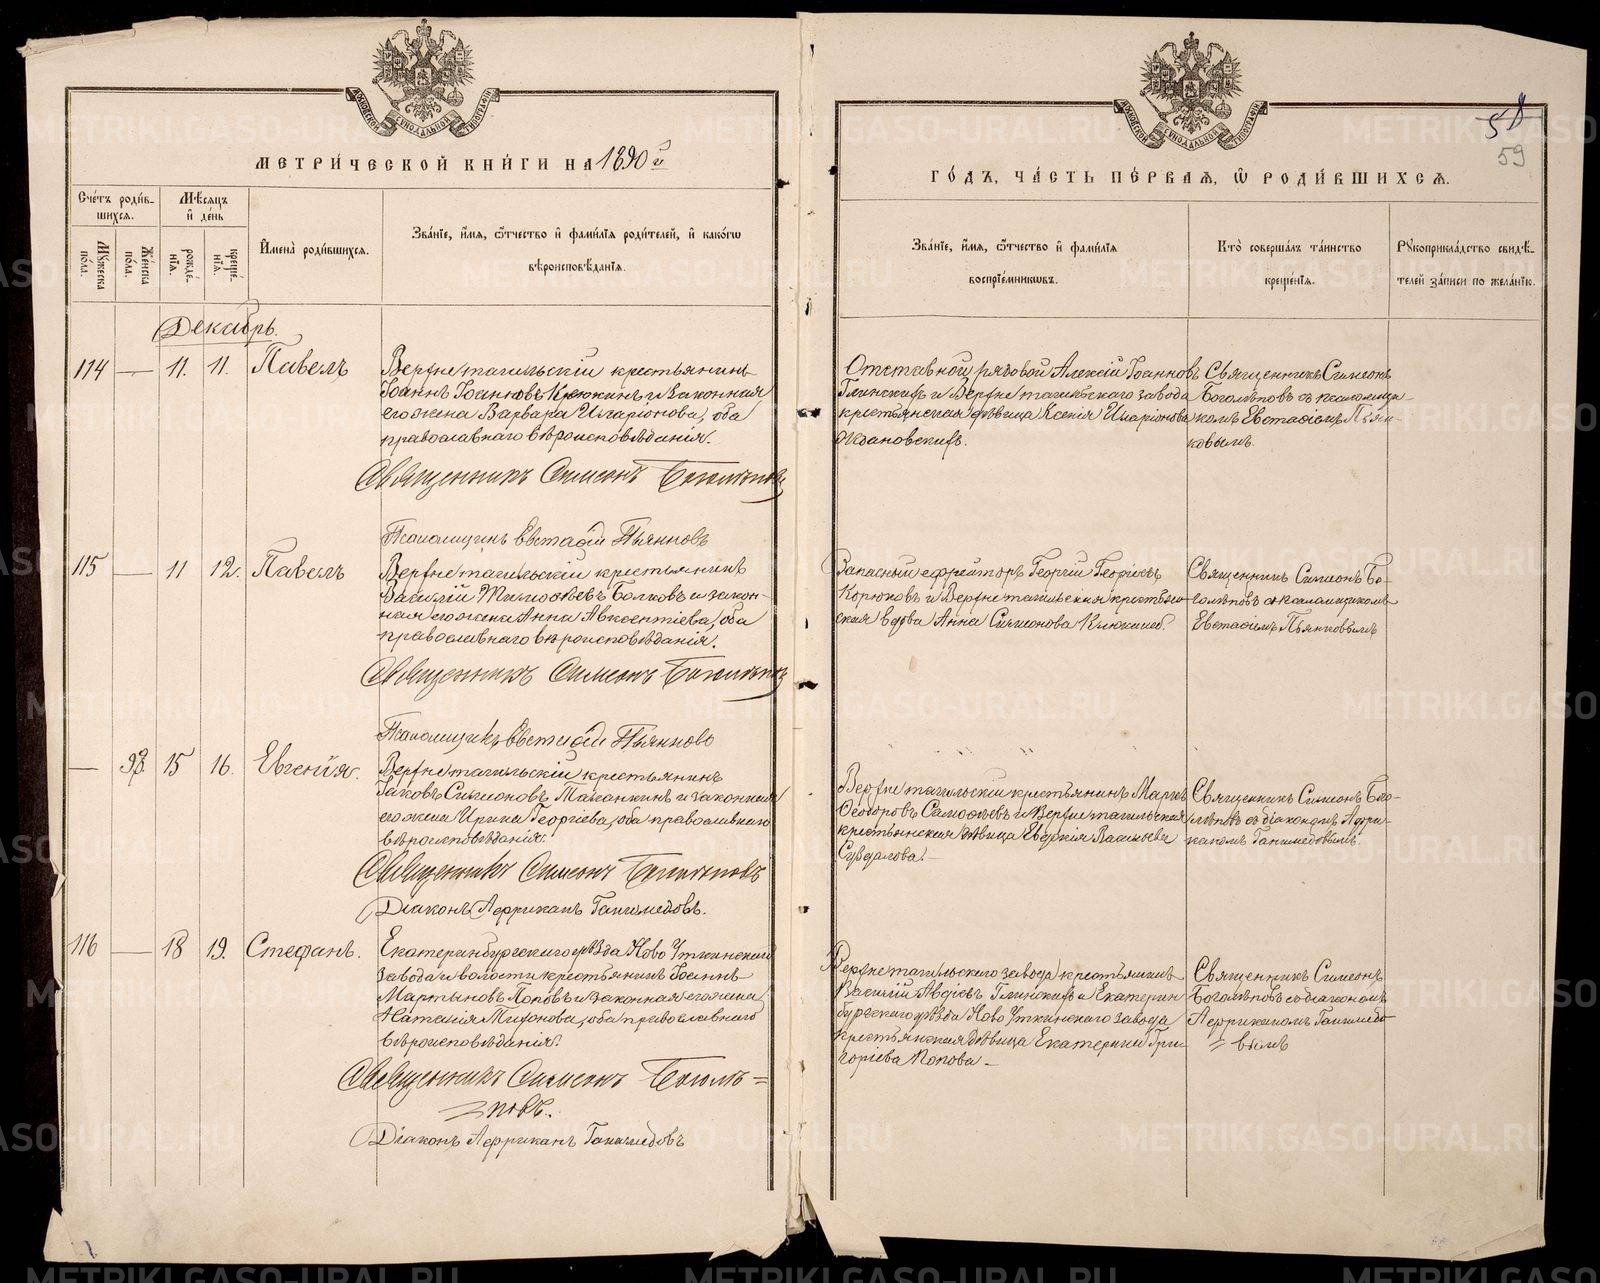 МЕТРИ́ЧЕСКОЙ КНИ́ГИ НА 1890й
Сче́тъ роди́в-
шихся.
Мѣ́сяцъ
и҆ де́нь
Мꙋ́жеска
по́ла.
Же́нска
по́ла.
рожде́-
нїѧ.
креще́-
нїѧ.
И҆мена̀ роди́вшихся.
Зва́нїе, и҆́мѧ, ѻ҆́тчество и҆ фами́лїѧ роди́телей, и҆ како́гѡ
вѣроисповѣ́данїѧ.
Декабрь.
114 — 11. 11. Павелъ
Верхнетагильскій крестьянинъ
Іоаннъ Іоанновъ Крюкинъ и законная
его жена Варвара Иларіонова, оба
православнаго вѣроисповѣданія.
Священникъ Симеонъ Боголѣповъ
Псаломщикъ Евстафій Пьянковъ
115 — 11 12. Павелъ
Верхнетагильскій крестьянинъ
Василій Тимофеевъ Волковъ и закон-
ная его жена Анна Авксентіева, оба
православнаго вѣроисповѣданія.
Священникъ Симеонъ Боголѣповъ
Псаломщикъ Евстафій Пьянковъ
— 98. 15 16. Евгенія.
Верхнетагильскій крестьянинъ
Іаковъ Симеоновъ и законная
его жена Ирина Георгіева, оба православнаго
вѣроисповѣданія.
Священникъ Симеонъ Боголѣповъ
Діаконъ Африканъ Ганимедовъ.
116 — 18 19. Стефанъ.
Екатеринбургскаго уѣзда Ново Уткинскаго
завода и волости крестьянинъ Іоаннъ
Мартыновъ Поповъ и законная его жена
Наталія оба православнаго
вѣроисповѣданія.
Священникъ Симеонъ Боголѣ=
повъ.
Діаконъ Африканъ Ганимедовъ
58
59
ГО́ДЪ, ЧА́СТЬ ПЕ́РВАѦ, Ѡ҆ РОДИ́ВШИХСѦ.
Зва́нїе, и҆́мѧ, ѻ҆́тчество и҆ фами́лїѧ
воспрїе́мникѡвъ.
Кто̀ соверша́лъ та́инство
креще́нїѧ.
Рꙋкоприкла́дство свидѣ́-
телей за́писи по жела́нїю.
Отставной рядовой Алексій Іоанновъ
Глинскихъ и Верхнетагильскаго завода
крестьянская дѣвица Ксенія Иларіонова
Священникъ Симеонъ
Боголѣповъ съ псаломщи
комъ Евстафіемъ Пьян
ковымъ.
Запасный ефрейторъ Георгій Георгіевъ
Корюковъ и Верхнетагильская крестьян-
ская вдова Анна Симеонова
Священникъ Симеонъ Бо-
голѣповъ съ псаломщикомъ
Евстафіемъ Пьянковымъ
Верхнетагильскій крестьянинъ Маркъ
Феодоровъ и Верхнетагильская
крестьянская дѣвица Евдокія Васильева
Сувдалова. —
Священникъ Симеонъ Бого-
лѣповъ съ діакономъ Афри-
каномъ Ганимедовымъ.
Верхнетагильскаго завода крестьянинъ
Василій Авдіевъ Глинскихъ и Екатерин
бургскаго уѣзда Ново Уткинскаго завода
крестьянская дѣвица Екатерина Гри-
горіева Попова —
Священникъ Симеонъ
Боголѣповъ съ діакономъ
Африканомъ Ганимедо
= вымъ